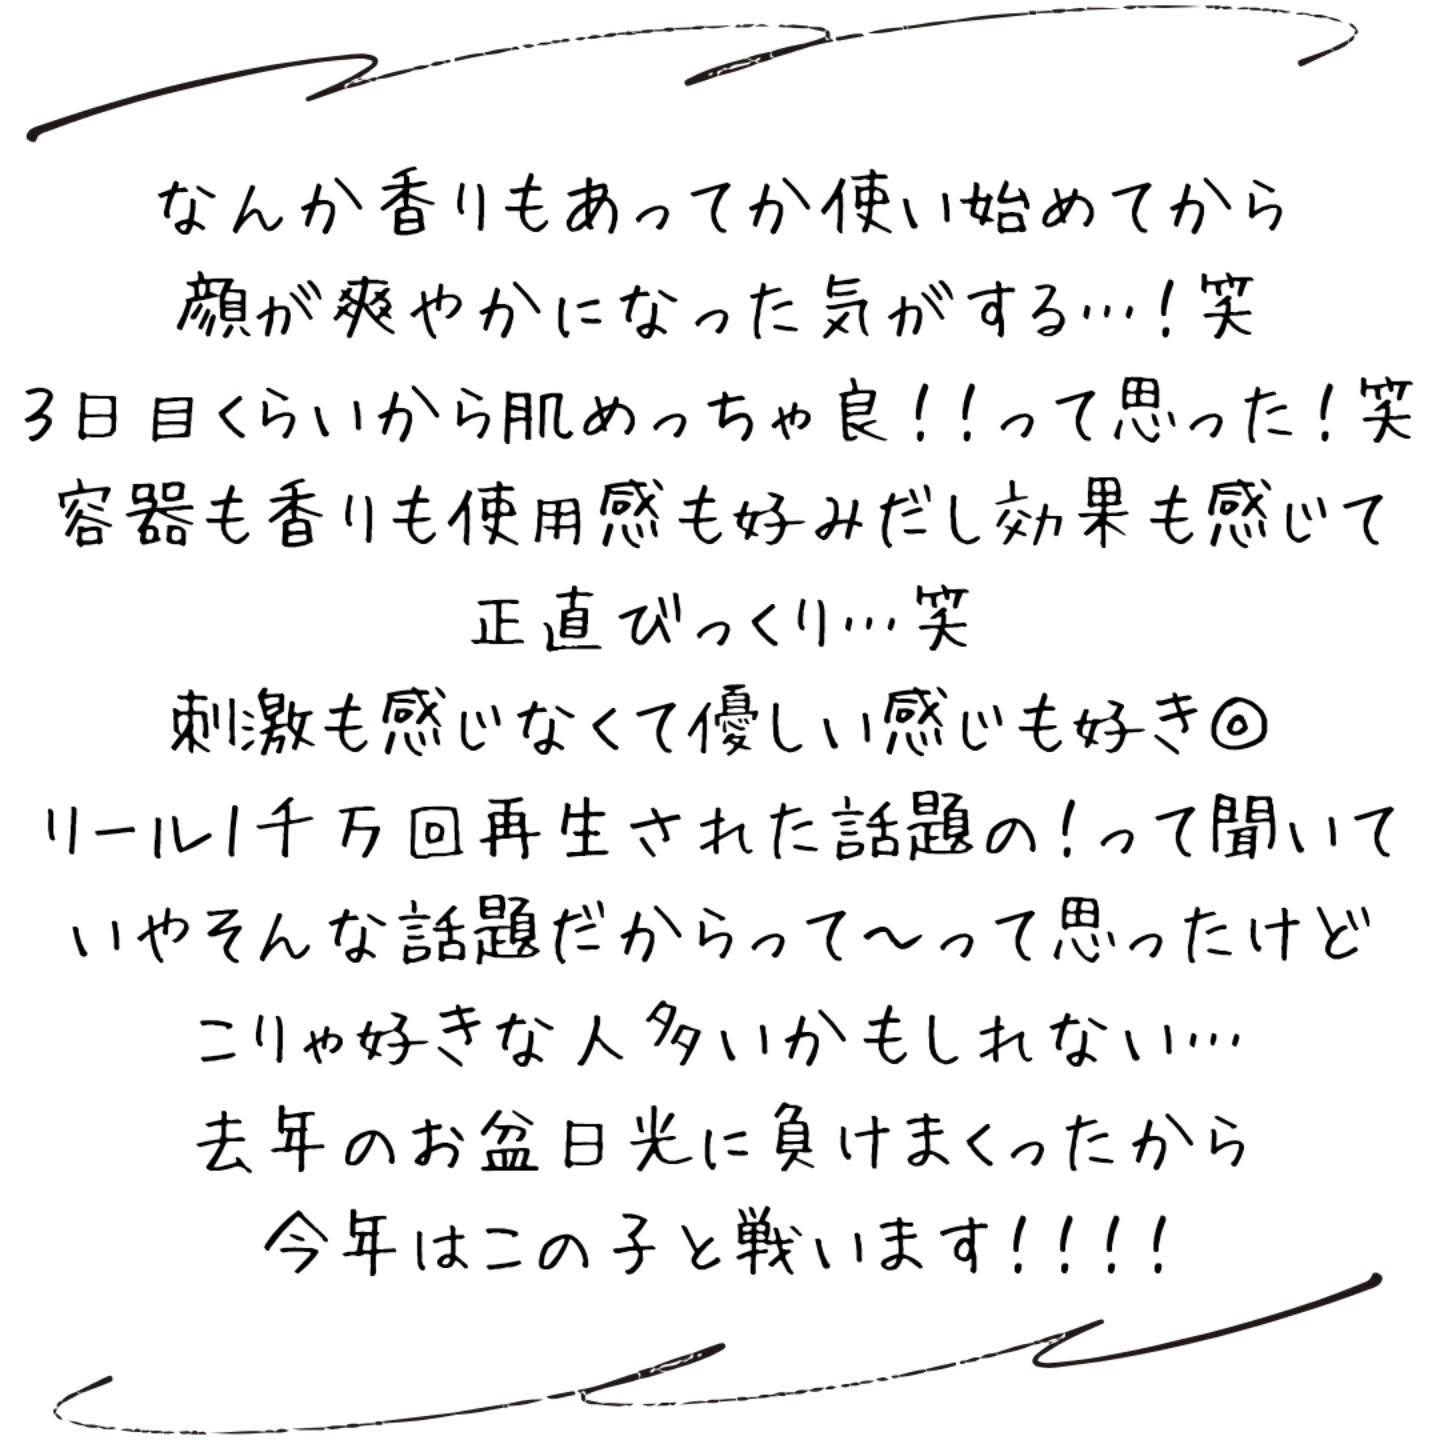 なんか香りもあってか使い始めてから
顔が爽やかになった気がする…！笑
3日目くらいから肌めっちゃ良！！って思った！笑
容器も香りも使用感も好みだし効果も感じて
正直びっくり…笑
刺激も感じなくて優しい感じも好き◎
リール1千万回再生された話題の！って聞いて
いやそんな話題だからって〜って思ったけど
こりゃ好きな人多いかもしれない…
去年のお盆日光に負けまくったから
今年はこの子と戦います！！！！